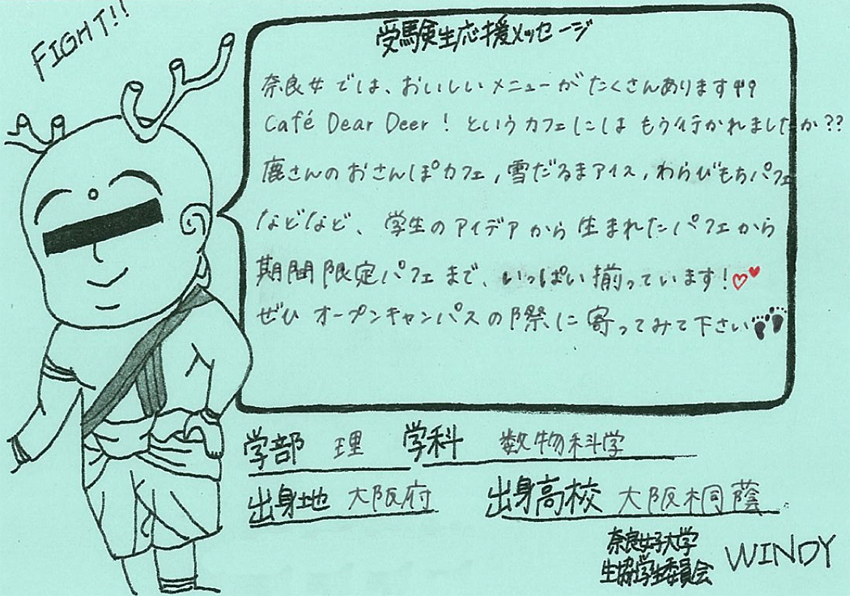 FIGHT!!
受験生応援メッセージ
奈良女では、おいしいメニューがたくさんあります
Café Dear Deer! というカフェにはもう行かれましたか??
鹿さんのおさんぽカフェ, 雪だるまアイス, わらびもちパフェ
などなど、学生のアイデアから生まれたパフェから
期間限定パフェまで、いっぱい揃っています!♡♥
ぜひ オープンキャンパスの際に寄ってみて下さい
学部 理 学科 数物科学
出身地 大阪府 出身高校 大阪桐蔭
奈良女子大学
生協学生委員会 WINDY